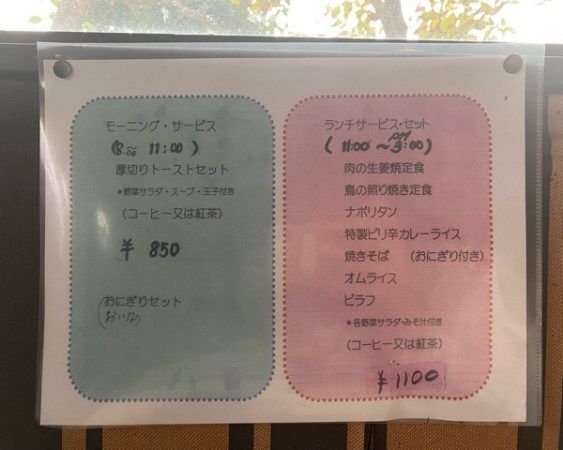 モーニング・サービス
(8:00 ~ 11:00)
厚切りトーストセット
*野菜サラダ・スープ・玉子付き
(コーヒー又は紅茶)
¥ 850
おにぎりセット
おいなり
ランチサービス・セット
(11:00 ~ PM 3:00)
肉の生姜焼定食
鳥の照り焼き定食
ナポリタン
特製ピリ辛カレーライス
焼きそば (おにぎり付き)
オムライス
ピラフ
*各野菜サラダ・みそ汁付き
(コーヒー又は紅茶)
¥1100